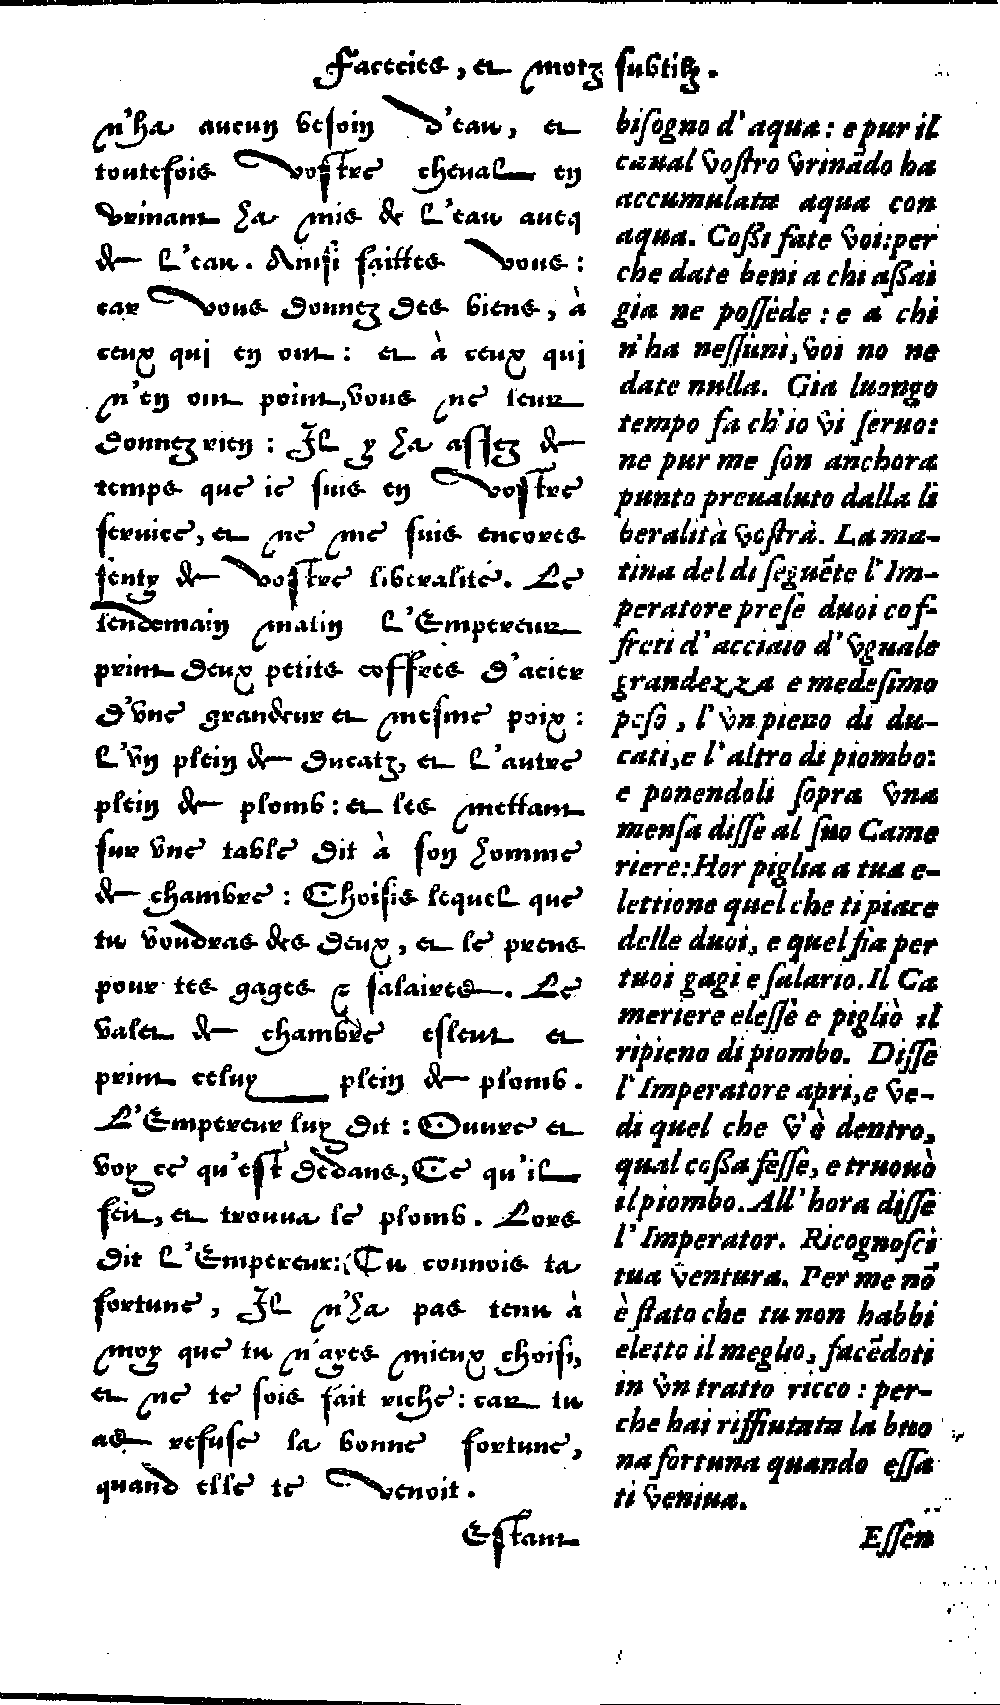 Facecies, et motz subtilz.
n'ha aucun besoin d'eau, et
toutefois vostre cheval en
vrinant ha mis de l'eau aueq
de l'eau. Ainsi faittes vous:
car vous donnez des biens, à
ceux qui en ont: et à ceux qui
n'en ont point, vous ne leur
donnez rien: Il y ha assez de
temps que ie suis en vostre
seruice, et ne me suis encores
senty de vostre liberalité. Le
lendemain matin l'Empereur
print deux petits coffres d'acier
d'vne grandeur et mesme poix:
l'vn plein de Ducatz, et l'autre
plein de plomb: et les mettant
sur vne table dit à son homme
de chambre: Choisis lequel que
tu voudras des deux, et le prens
pour tes gages & salaires. Le
valet de chambre esleut et
print celuy plein de plomb.
L'Empereur luy dit: Ouure et
voy ce qu'est dedans, Ce qu'il
feit, et trouua le plomb. Lors
dit l'Empereur: Tu connois ta
fortune, Il n'ha pas tenu à
moy que tu n'ayes mieux choisi,
et ne te sois fait riche: car tu
as refuse la bonne fortune,
quand elle te venoit.
Estant
bisogno d'aqua: e pur il
caual vostro vrinãdo ha
accumulata aqua con
aqua. Cossi fate voi: per
che date beni a chi assai
gia ne possède: e a chi
n'ha nessùni, voi no ne
date nulla. Gia luongo
tempo fa ch'io vi seruo:
ne pur me son anchora
punto preualuto dalla li
beralità vostrà. La ma-
tina del di seguẽte l'Im-
peratore prese duoi cof-
freti d'acciaio d'vguale
grandezza e medesimo
peso, l'vn pieno di du-
cati, e l'altro di piombo:
e ponendoli sopra vna
mensa disse al suo Came
riere: Hor piglia a tua e-
lettione quel che ti piace
delle duoi, e quel sia per
tuoi gagi e salario. Il Ca
meriere elessè e pigliò il
ripieno di piombo. Disse
l'Imperatore apri, e ve-
di quel che v'è dentro,
qual cossa fesse, e truouò
il piombo. All'hora disse
l'Imperator. Ricognosci
tua ventura. Per me nõ
è stato che tu non habbi
eletto il meglio, facẽdoti
in vn tratto ricco: per-
che hai riffiutata la buo
na fortuna quando essa
ti veniua.
Essen